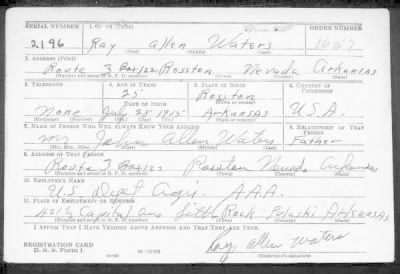 SERIAL NUMBER 1. NAME (Print) ORDER NUMBER
2196 Ray Allen Waters 1657
(First) (Middle) (Last)
2. ADDRESS (Print)
Route 3 Box 122 Rosston Nevada Arkansas
(Number and street or R. F. D. number) (Town) (County) (State)
3. TELEPHONE 4. AGE IN YEARS 5. PLACE OF BIRTH 6. COUNTRY OF CITIZENSHIP
25 Rosston
DATE OF BIRTH (Town or county)
None July 28 1915 Arkansas U.S.A.
(Exchange) (Number) (Mo.) (Day) (Yr.) (State or country)
7. NAME OF PERSON WHO WILL ALWAYS KNOW YOUR ADDRESS 8. RELATIONSHIP OF THAT PERSON
Mr Allen Waters Father
(Mr., Mrs., Miss) (First) (Middle) (Last)
9. ADDRESS OF THAT PERSON
Route 3 Box 122 Rosston Nevada Arkansas
(Number and street or R. F. D. number) (Town) (County) (State)
10. EMPLOYER'S NAME
U.S. Dept Agri. A.A.A.
11. PLACE OF EMPLOYMENT OR BUSINESS
Capitol Ave Little Rock Pulaski Arkansas
(Number and street or R. F. D. number) (Town) (County) (State)
I AFFIRM THAT I HAVE VERIFIED ABOVE ANSWERS AND THAT THEY ARE TRUE.
Ray Allen Waters
REGISTRATION CARD
D. S. S. Form 1 (over) (Registrant's signature)